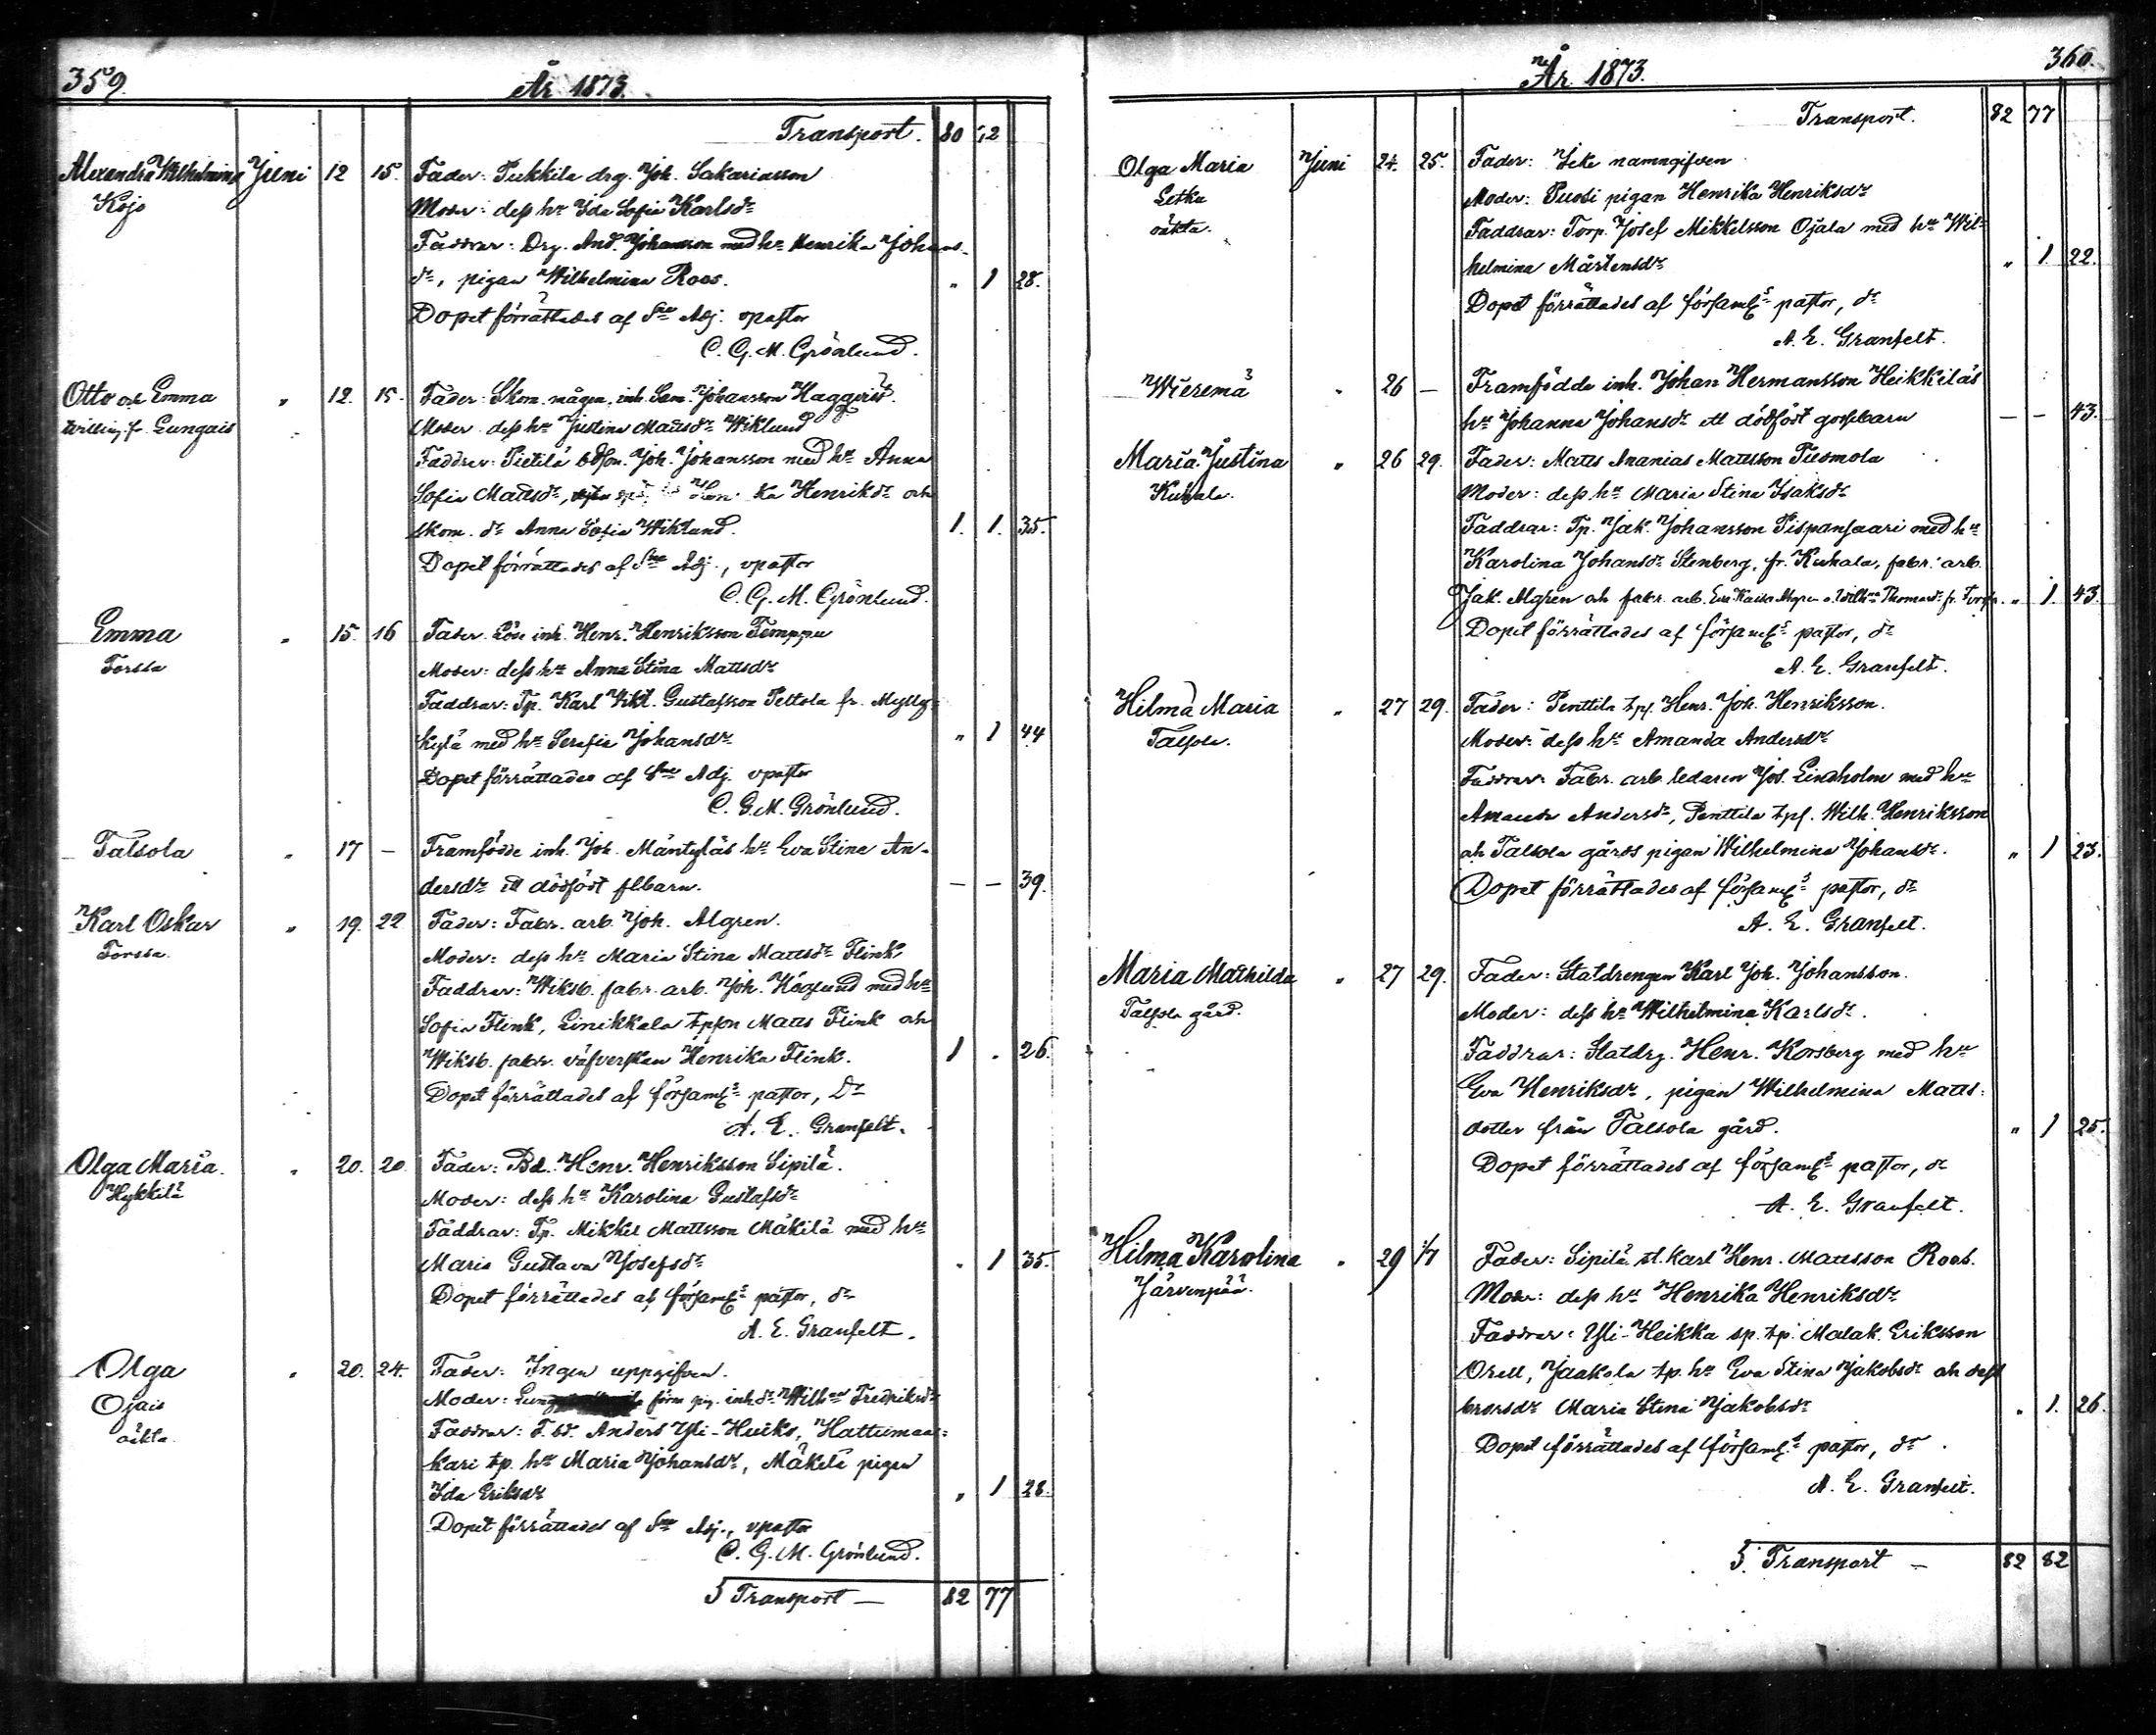 359.
År 1873.
Transport. 80 72
Alexandra Wilhelmina Juni 12 15. Fader: Pukkila drg. Joh. Sakariasson
Kojo Moder: dess hu Ida Sofia Karlsdr
Faddrar: Drg. And. Johansson med hu Henrika Johans-
dr, pigan Wilhelmina Roos. " 1 28.
Dopet förrättades af Sne Adj. vpastor
C. G. M. Grönlund.
Otto och Emma " 12. 15. Fader: Skom. mågen, inh. Sam. Johansson Haggqvist.
twilling. fr. Lungais Moder dess hu Justina Mattsdr Wiklund
Faddrar: Pietilä bdson. Joh. Johansson med hu Anna
Sofia Mattsdr, Henriksdr och
skom. dr Anna Sofia Wiklund. 1. 1. 35.
Dopet förrättades af Sne Adj., vpastor
C. G. M. Grönlund.
Emma " 15. 16 Fader. Löse inh. Henr. Henriksson Temppu
Forssa Moder: dess hu Anna Stina Mattsdr
Faddrar: Tp. Karl Vikt. Gustafsson Peltola fr. Mylly-
kylä med hu Serafia Johansdr " 1 44
Dopet förrättades af Sne Adj. vpastor
C. G. M. Grönlund.
Talsola " 17 – Framfödde inh. Joh. Mäntyläs hu Eva Stina An-
dersdr ett dödfödt flbarn. – – 39.
Karl Oskar " 19. 22 Fader: Fabr. arb. Joh. Algren.
Forssa. Moder: dess hu Maria Stina Mattsdr Flink
Faddrar: Wiksb. fabr. arb. Joh. Höglund med hu
Sofia Flink, Linikkala tpson Matts Flink och
Wiksb. fabr. väfverskan Henrika Flink. 1 . 26.
Dopet förrättades af församls pastor, Dr
A. E. Granfelt.
Olga Maria. " 20. 20 Fader: Bd. Henr. Henriksson Sipilä.
Hykkilä Moder: dess hu Karolina Gustafsdr
Faddrar: Tp. Mikkel Mattsson Mäkilä med hu
Maria Gustava Josefsdr " 1 35.
Dopet förrättades af församls pastor, dr
A. E. Granfelt.
Olga " 20. 24. Fader: Ingen uppgifven.
Ojais Moder: förra pig. inh. dr Wilhna Fredriksdr
oäkta. Faddrar: F. bd. Anders Yli-Huiko, Hattuman-
kari tp. hu Maria Johansdr, Mäkilä pigan
Ida Eriksdr " 1 28.
Dopet förrättades af Sne Adj., vpastor
C. G. M. Grönlund.
5 Transport – 82 77
År 1873.
360.
Transport. 82 77
Olga Maria Juni 24. 25. Fader: Icke namngifven
Letku Moder: Puosi pigan Henrika Henriksdr
oäkta. Faddrar: Torp. Josef Mikkelsson Ojala med hu Wil-
helmina Mårtensdr " 1. 22.
Dopet förrättades af församls pastor, dr
A. E. Granfelt.
Wieremä " 26 – Framfödde inh. Johan Hermansson Heikkiläs
hu Johanna Johansdr ett dödfödt gossbarn – – 43.
Maria Justina " 26 29. Fader: Matts Ananias Mattsson Tuomola
Kuhala. Moder: dess hu Maria Stina Isaksdr
Faddrar: Tp. Jak. Johansson Pispansaari med hu
Karolina Johansdr Stenberg, fr. Kuhala, fabr. arb.
Jak. Algren och fabr. arb. Eva Kaisa Algren o. Wilhna Thomasdr fr. Forssa. " 1. 43.
Dopet förrättades af församls pastor, dr
A. E. Granfelt.
Hilma Maria " 27 29. Fader: Penttilä tpf. Henr. Joh. Henriksson.
Talsola. Moder: dess hu Amanda Andersdr
Faddrar: Fabr. arb. ledaren Jos. Lindholm med hu
Amanda Andersdr, Penttilä tpf. Wilh. Henriksson
och Talsola gårds pigan Wilhelmina Johansdr. " 1 23.
Dopet förrättades af församls pastor, dr
A. E. Granfelt.
Maria Mathilda " 27 29. Fader: Statdrengen Karl Joh. Johansson.
Talsola gård. Moder: dess hu Wilhelmina Karlsdr.
Faddrar: Statdrg. Henr. Korsberg med hu
Eva Henriksdr, pigan Wilhelmina Matts-
dotter från Talsola gård. " 1 25.
Dopet förrättades af församls pastor, dr
A. E. Granfelt.
Hilma Karolina " 29 1/7 Fader: Sipilä st. Karl Henr. Mattsson Roos.
Järvenpää. Moder: dess hu Henrika Henriksdr
Faddrar: Yli-Heikka sp. tp. Malak. Eriksson
Orell, Jaakola tp. hu Eva Stina Jakobsdr och dess
brorsdr Maria Stina Jakobsdr " 1. 26.
Dopet förrättades af församls pastor, dr
A. E. Granfelt.
5. Transport – 82 82